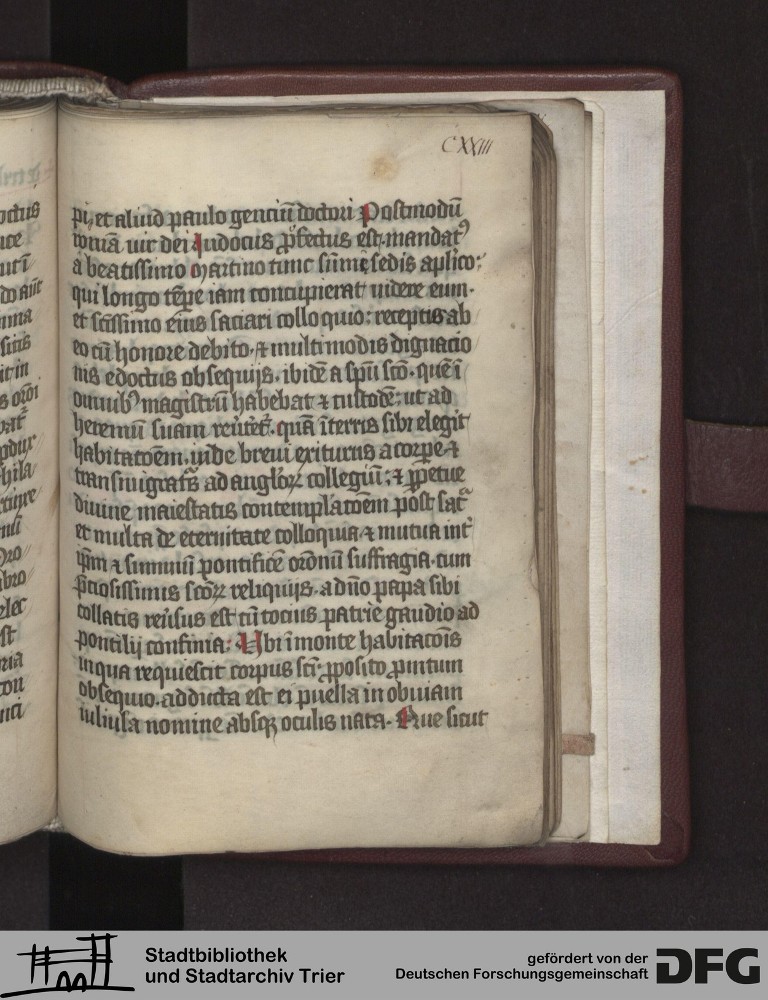 CXXIII
pi, et aliud paulo genciū doctori Postmodū
romā uir dei iudocus ꝓfectus est, mandatꝰ
a beatissimo martino tunc sūme sedis aplico;
qui longo tēpre iam concupierat uidere eum·
et scīssimo eius saciari colloquio: receptus ab
eo cū honore debito· ⁊ multimodis dignacio
nis edoctus obsequijs· ibidē a spū scō· quē ī
omnibꝰ magistrū habebat ⁊ custodē: ut ad
heremū suam reūtet̄· quā īterris sibi elegit
habitatōem· inde breui exiturus a corpe ⁊
ad anglorꝝ collegiū; ⁊ ꝑpetue
diuine maiestatis contemplatōem pōst
et multa de eternitate colloquia ⁊ mutua int̄
ipm ⁊ summū pontificē ordnū suffragia· cum
p̄ciosissimis scōꝝ reliquijs· a dno papa sibi
collatis reūsus est cū tocius patrie gaudio ad
pontilij confinia: Ubi ī monte habitacōis
inqua requiescit corpus sci· ꝓposito
obsequio· adducta est ei puella in obuiam
iuliula nomine absqꝫ oculis nata· Que sicut
Stadtbibliothek
und Stadtarchiv Trier
gefördert von der
Deutschen Forschungsgemeinschaft
DFG